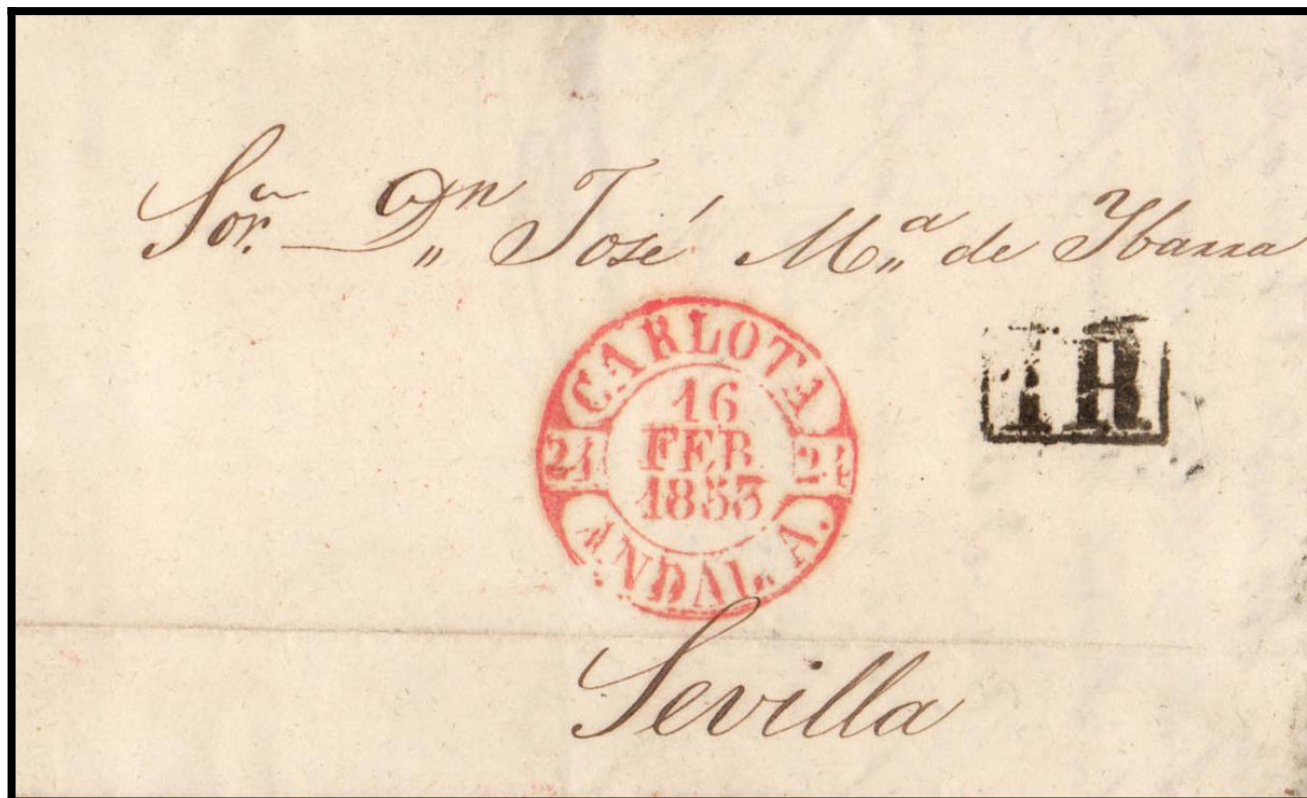 Sor. Dn José Ma de Ybarra
CARLOTA
1 R
16
FEB
24 24
1853
ANDAL. A.
Sevilla